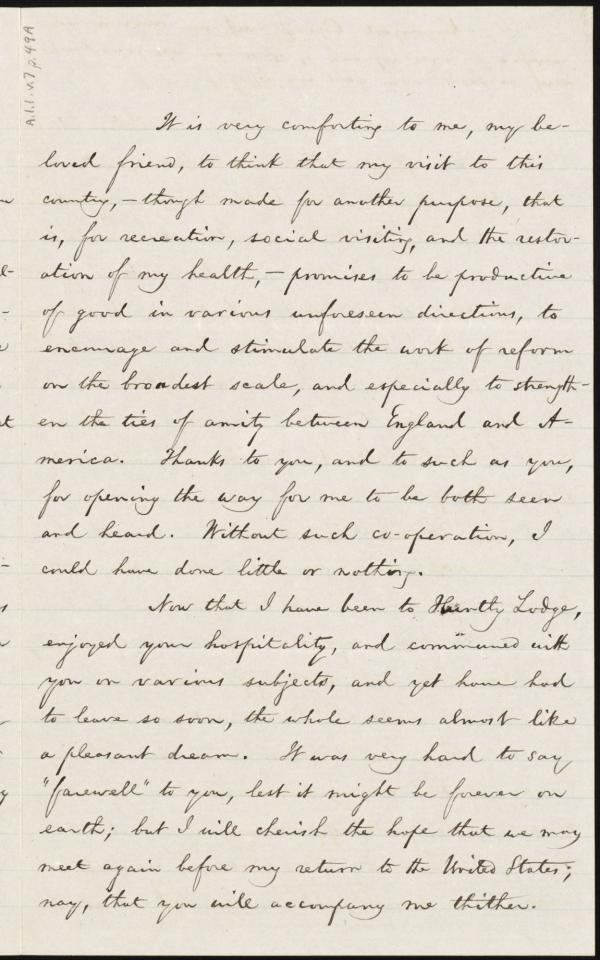 A.1.1 v.7 p.49A
It is very comforting to me, my be-
loved friend, to think that my visit to this
country,—though made for another purpose, that
is, for recreation, social visiting, and the restor-
ation of my health,—promises to be productive
of good in various unforeseen directions, to
encourage and stimulate the work of reform
on the broadest scale, and especially to strength-
en the ties of amity between England and A-
merica. Thanks to you, and to such as you,
for opening the way for me to be both seen
and heard. Without such co-operation, I
could have done little or nothing.
Now that I have been to Huntly Lodge,
enjoyed your hospitality, and communed with
you on various subjects, and yet have had
to leave so soon, the whole seems almost like
a pleasant dream. It was very hard to say
"farewell" to you, lest it might be forever on
earth; but I will cherish the hope that we may
meet again before my return to the United States;
nay, that you will accompany me thither.